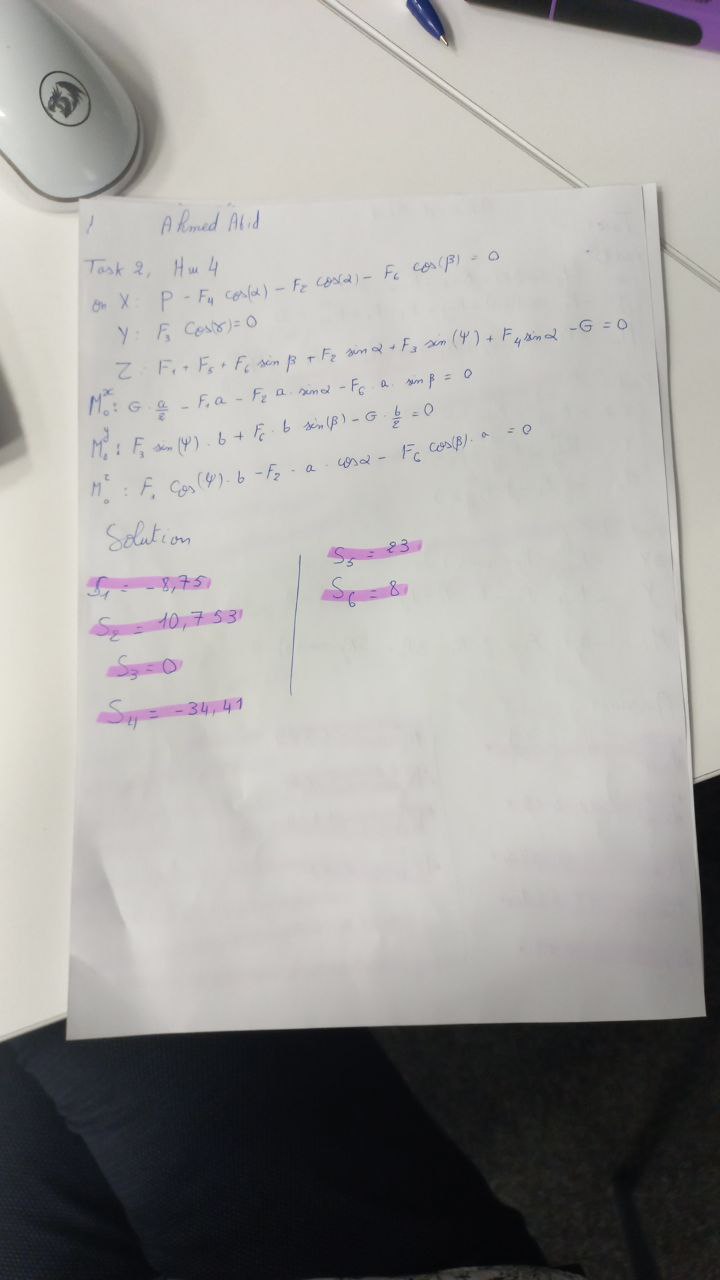 Ahmed Abid
Task 2, Hw 4
on X: P - F4 cos(α) - F2 cos(α) - F6 cos(β) = 0
Y: F3 cos(γ) = 0
Z: F1 + F5 + F6 sin β + F2 sin α + F3 sin(Ψ) + F4 sin α - G = 0
M₀ˣ: G · a/2 - F1 a - F2 a · sin α - F6 · a · sin β = 0
M₀ʸ: F3 sin(Ψ) · b + F6 · b sin(β) - G · b/2 = 0
M₀ᶻ: F, cos(Ψ) · b - F2 · a · cos α - F6 cos(β) · a = 0
Solution
S1 = -8,75
S2 = 10,753
S3 = 0
S4 = -34,41
S5 = 23
S6 = 8